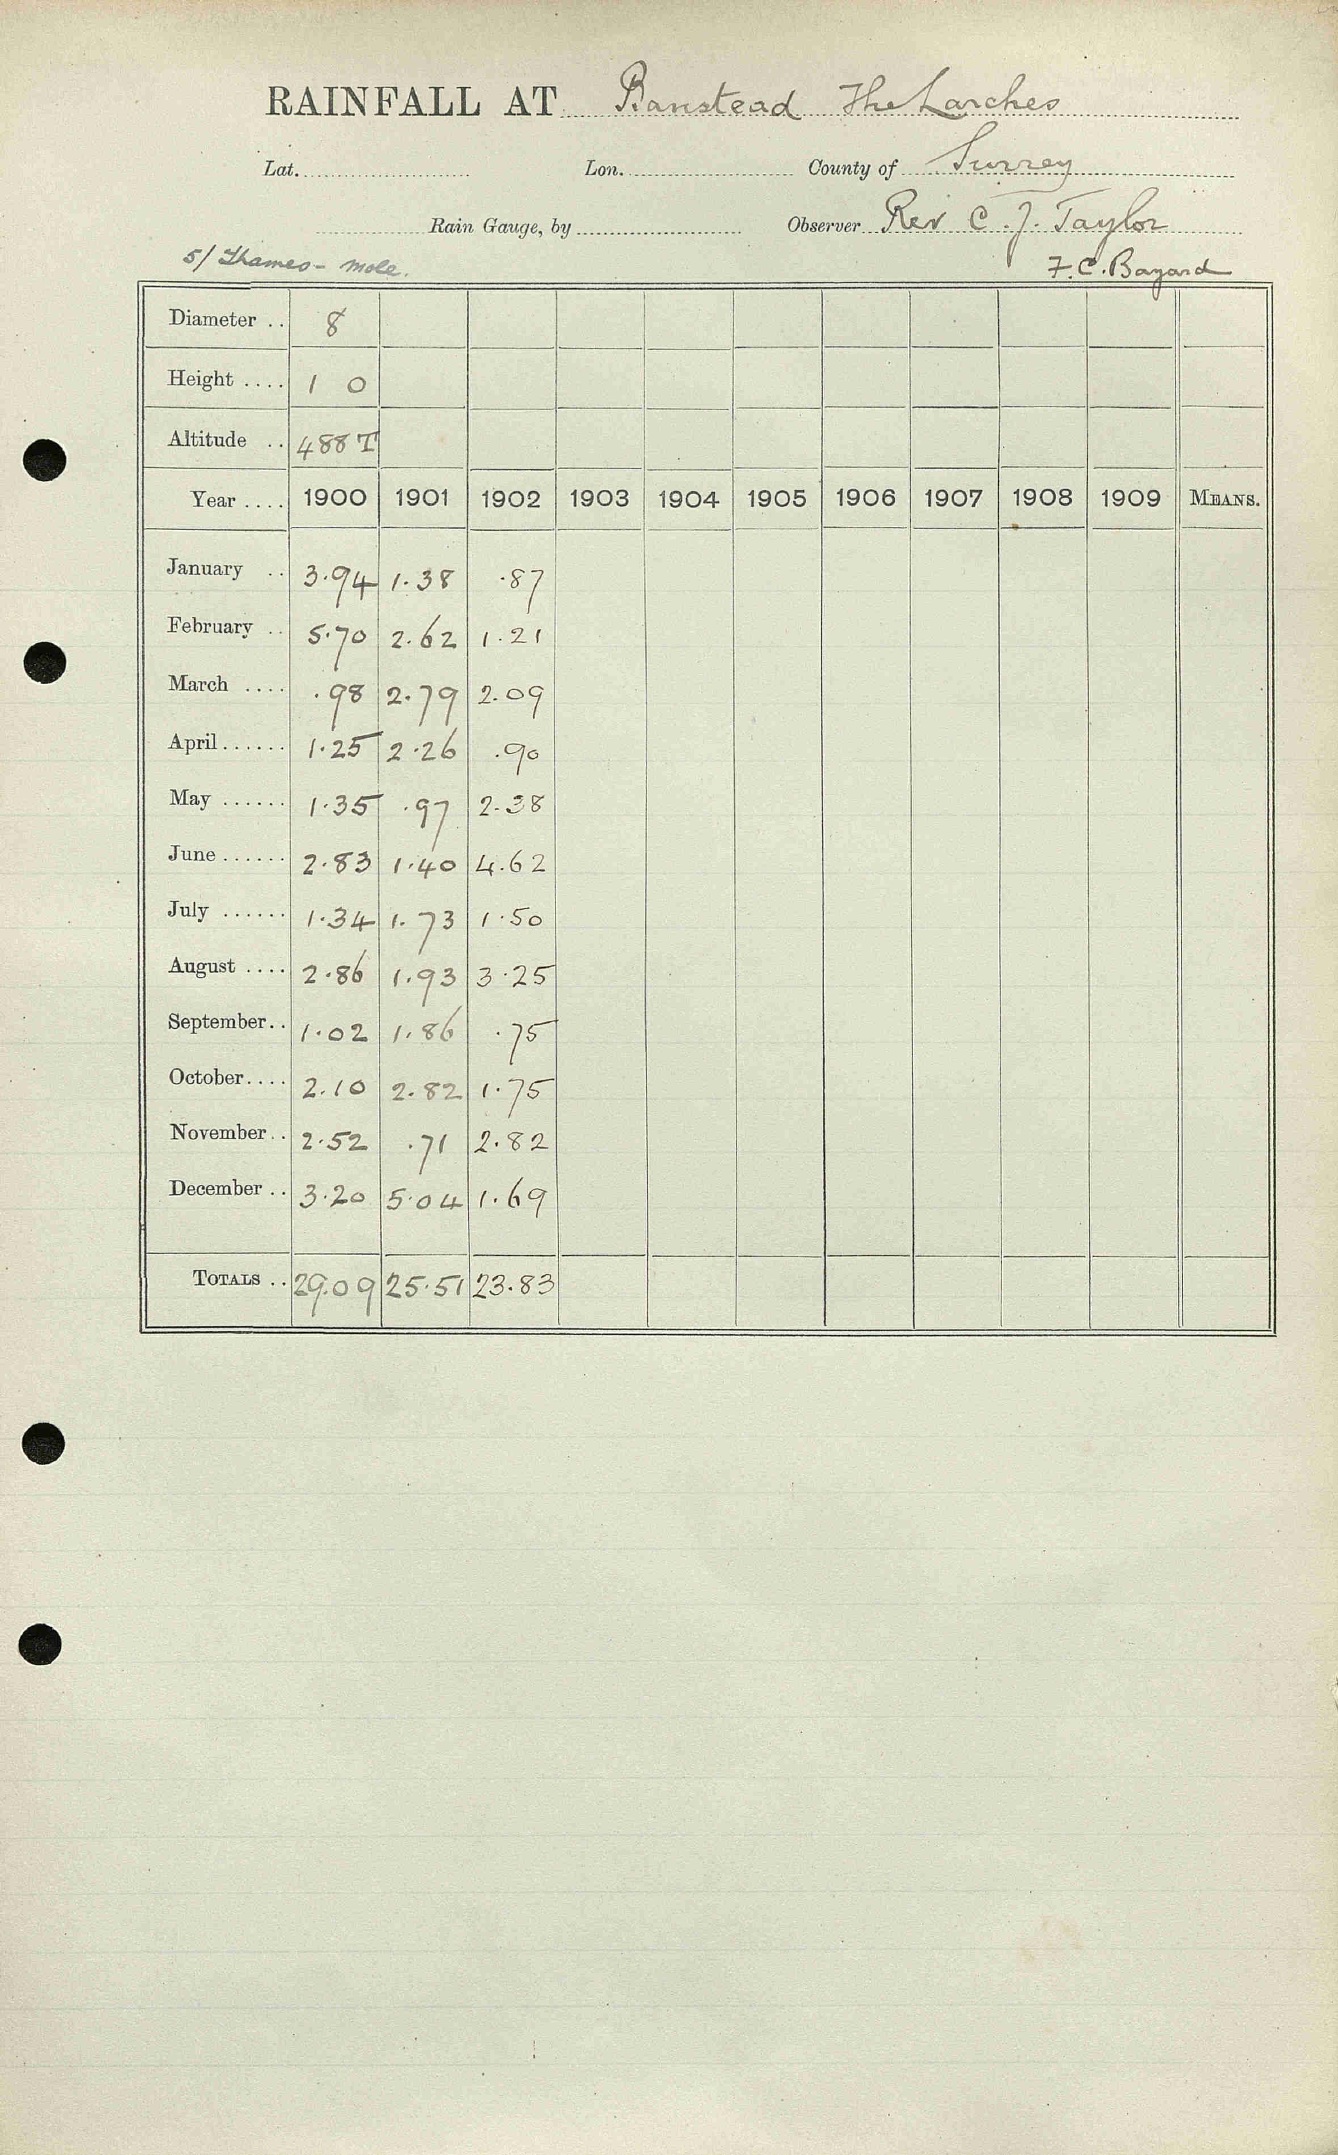 RAINFALL AT Banstead The Larches
Lat. Lon. County of Surrey
Rain Gauge, by Observer Rev C. J. Taylor
5/ Thames - Mole. F. C. Bayard
Diameter .. 8
Height .... 1 0
Altitude .. 488 T
Year .... 1900 1901 1902 1903 1904 1905 1906 1907 1908 1909 MEANS.
January .. 3.94 1.38 .87
February .. 5.70 2.62 1.21
March .... .98 2.79 2.09
April ...... 1.25 2.26 .90
May ...... 1.35 .97 2.38
June ...... 2.83 1.40 4.62
July ...... 1.34 1.73 1.50
August .... 2.86 1.93 3.25
September.. 1.02 1.86 .75
October.... 2.10 2.82 1.75
November.. 2.52 .71 2.82
December .. 3.20 5.04 1.69
TOTALS .. 29.09 25.51 23.83